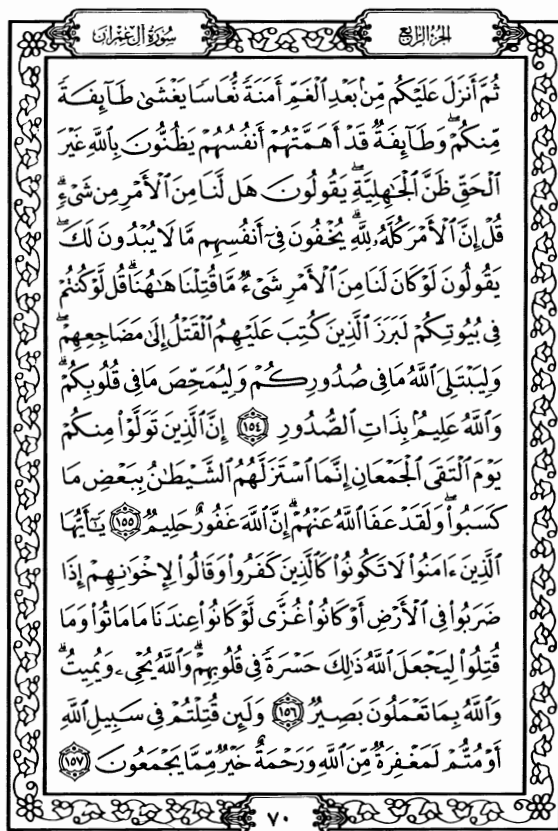 سُورَةُ آلِ عِمْرَان
الجُزْءُ الرَّابِعُ
ثُمَّ أَنزَلَ عَلَيْكُم مِّنۢ بَعْدِ ٱلْغَمِّ أَمَنَةً نُّعَاسًا يَغْشَىٰ طَآئِفَةً
مِّنكُمْ ۖ وَطَآئِفَةٌ قَدْ أَهَمَّتْهُمْ أَنفُسُهُمْ يَظُنُّونَ بِٱللَّهِ غَيْرَ
ٱلْحَقِّ ظَنَّ ٱلْجَٰهِلِيَّةِ ۖ يَقُولُونَ هَل لَّنَا مِنَ ٱلْأَمْرِ مِن شَىْءٍ ۗ
قُلْ إِنَّ ٱلْأَمْرَ كُلَّهُۥ لِلَّهِ ۗ يُخْفُونَ فِىٓ أَنفُسِهِم مَّا لَا يُبْدُونَ لَكَ ۖ
يَقُولُونَ لَوْ كَانَ لَنَا مِنَ ٱلْأَمْرِ شَىْءٌ مَّا قُتِلْنَا هَٰهُنَا ۗ قُل لَّوْ كُنتُمْ
فِى بُيُوتِكُمْ لَبَرَزَ ٱلَّذِينَ كُتِبَ عَلَيْهِمُ ٱلْقَتْلُ إِلَىٰ مَضَاجِعِهِمْ ۖ
وَلِيَبْتَلِىَ ٱللَّهُ مَا فِى صُدُورِكُمْ وَلِيُمَحِّصَ مَا فِى قُلُوبِكُمْ ۗ
وَٱللَّهُ عَلِيمٌۢ بِذَاتِ ٱلصُّدُورِ ١٥٤ إِنَّ ٱلَّذِينَ تَوَلَّوْا۟ مِنكُمْ
يَوْمَ ٱلْتَقَى ٱلْجَمْعَانِ إِنَّمَا ٱسْتَزَلَّهُمُ ٱلشَّيْطَٰنُ بِبَعْضِ مَا
كَسَبُوا۟ ۖ وَلَقَدْ عَفَا ٱللَّهُ عَنْهُمْ ۗ إِنَّ ٱللَّهَ غَفُورٌ حَلِيمٌ ١٥٥ يَٰٓأَيُّهَا
ٱلَّذِينَ ءَامَنُوا۟ لَا تَكُونُوا۟ كَٱلَّذِينَ كَفَرُوا۟ وَقَالُوا۟ لِإِخْوَٰنِهِمْ إِذَا
ضَرَبُوا۟ فِى ٱلْأَرْضِ أَوْ كَانُوا۟ غُزًّى لَّوْ كَانُوا۟ عِندَنَا مَا مَاتُوا۟ وَمَا
قُتِلُوا۟ لِيَجْعَلَ ٱللَّهُ ذَٰلِكَ حَسْرَةً فِى قُلُوبِهِمْ ۗ وَٱللَّهُ يُحْىِۦ وَيُمِيتُ ۗ
وَٱللَّهُ بِمَا تَعْمَلُونَ بَصِيرٌ ١٥٦ وَلَئِن قُتِلْتُمْ فِى سَبِيلِ ٱللَّهِ
أَوْ مُتُّمْ لَمَغْفِرَةٌ مِّنَ ٱللَّهِ وَرَحْمَةٌ خَيْرٌ مِّمَّا يَجْمَعُونَ ١٥٧
٧٠